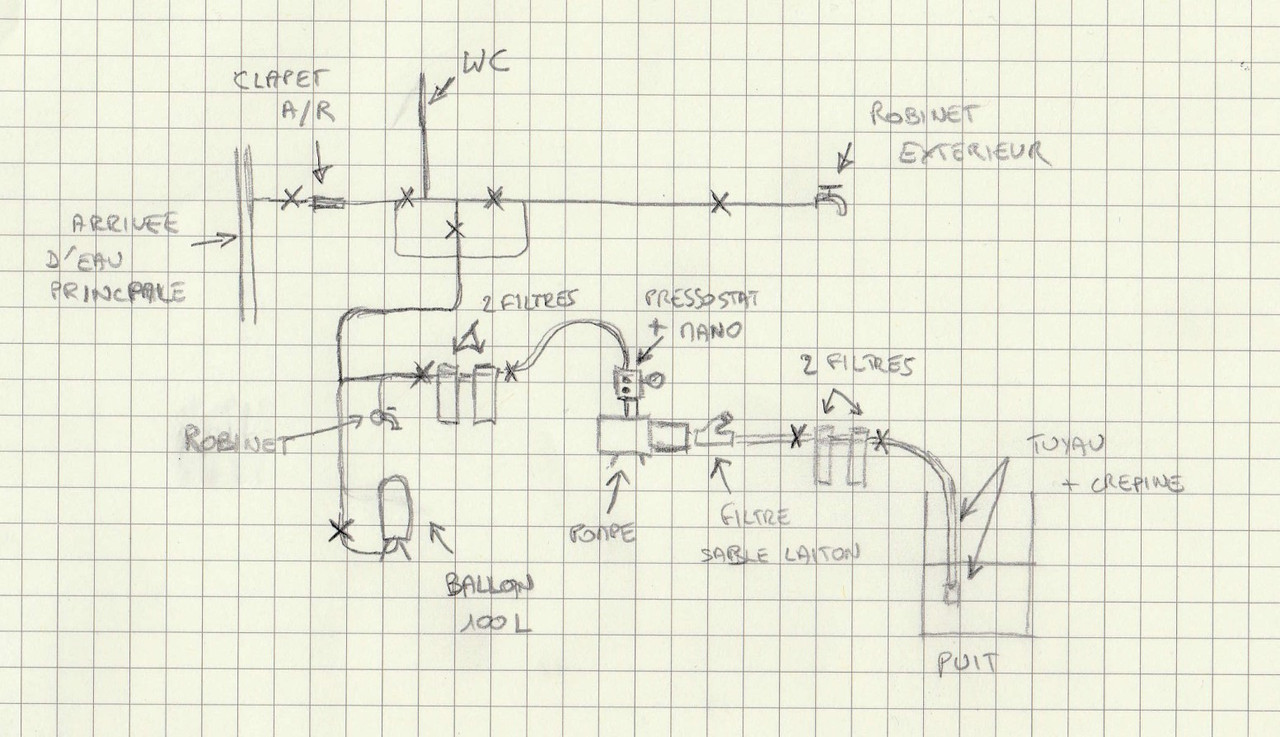 CLAPET
A/R
WC
ROBINET
EXTERIEUR
ARRIVEE
D'EAU
PRINCPALE
2 FILTRES
PRESSOSTAT
+ MANO
2 FILTRES
ROBINET
TUYAU
+ CREPINE
POMPE
FILTRE
SABLE LAITON
BALLON
100L
PUIT